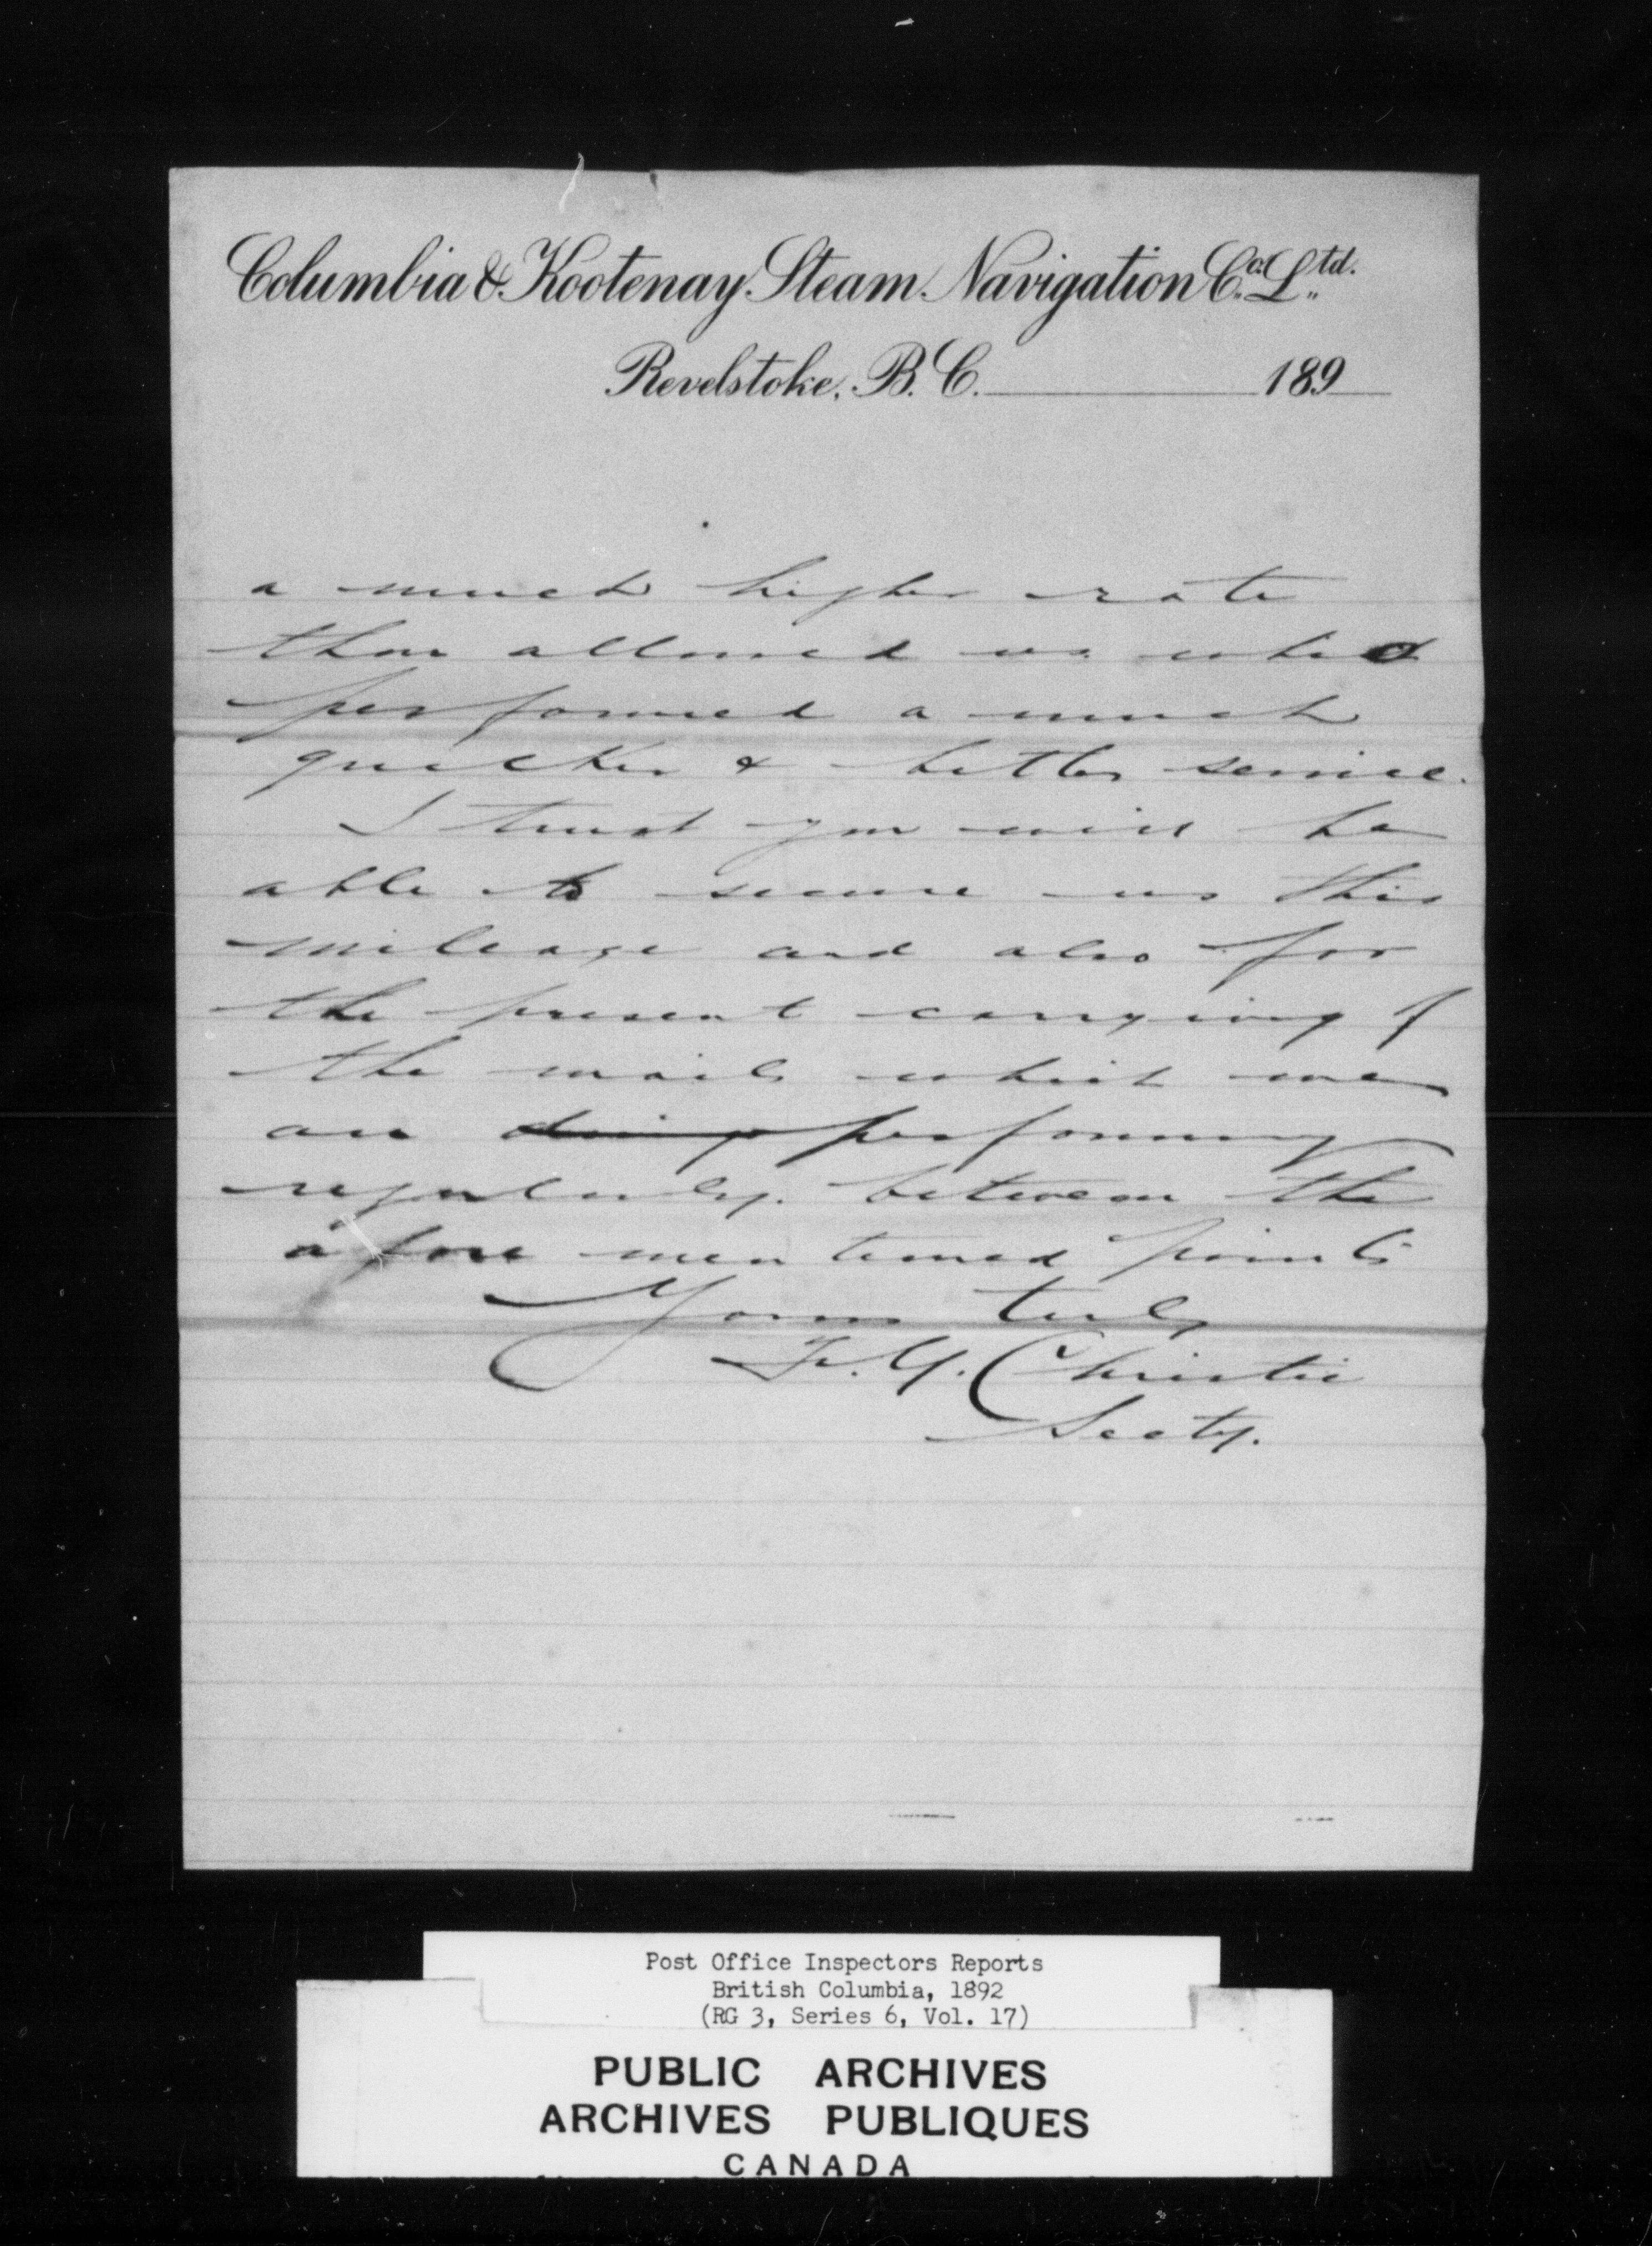 Columbia & Kootenay Steam Navigation Co. Ltd.
Revelstoke, B.C. 189
a much higher rate
than allowed us who
performed a much
quicker & better service.
I trust you will be
able to secure us this
mileage and also for
the present carrying of
the mails which we
are doing performing
regularly between the
afore mentioned points
Yours truly
F. G. Christie
Secty.
Post Office Inspectors Reports
British Columbia, 1892
(RG 3, Series 6, Vol. 17)
PUBLIC ARCHIVES
ARCHIVES PUBLIQUES
CANADA